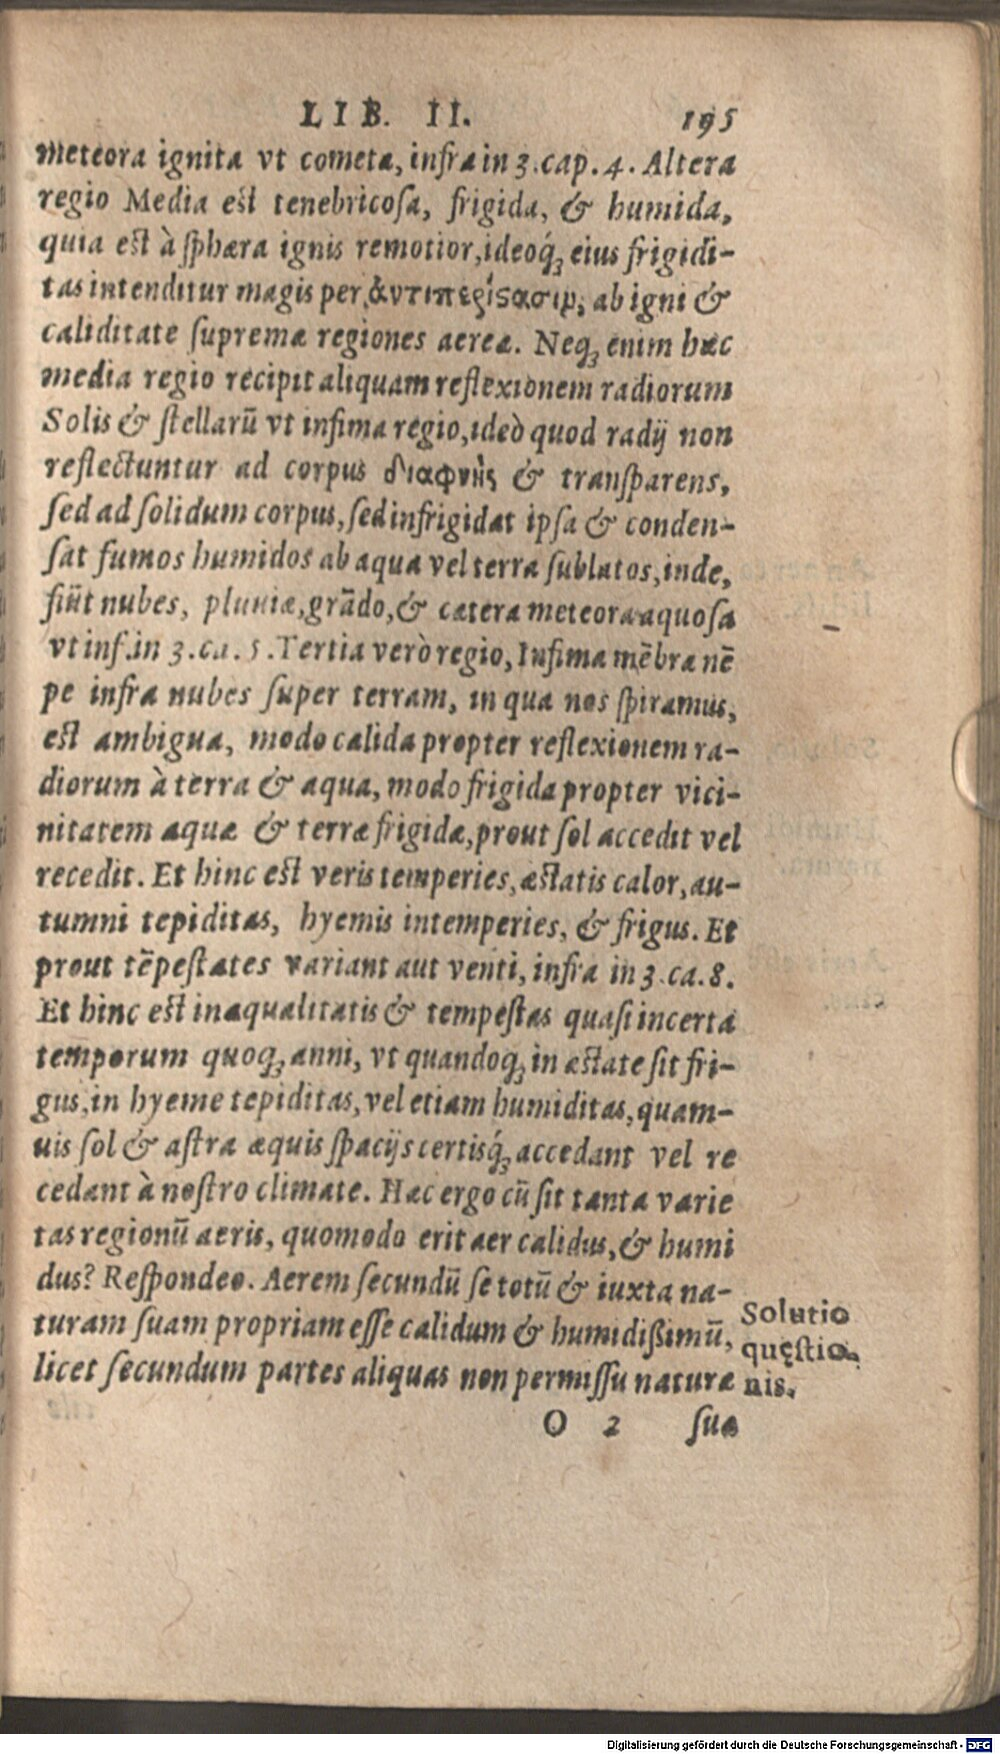 LIB. II. 195
meteora ignita vt cometa, infra in 3. cap. 4. Altera
regio Media est tenebricosa, frigida, & humida,
quia est à sphæra ignis remotior, ideoq́ꝫ eius frigidi-
tas intenditur magis per ἀντιπερίστασιν, ab igni &
caliditate supremæ regiones aereæ. Neqꝫ enim hæc
media regio recipit aliquam reflexionem radiorum
Solis & stellarū vt infima regio, ideò quod radij non
reflectuntur ad corpus διαφανὴς & transparens,
sed ad solidum corpus, sed infrigidat ipsa & conden-
sat fumos humidos ab aqua vel terra sublatos, inde,
fiūt nubes, pluuiæ, grādo, & cætera meteora aquosa
vt inf. in 3. ca. 5. Tertia verò regio, Infima mēbra nē
pe infra nubes super terram, in qua nos spiramus,
est ambigua, modo calida propter reflexionem ra-
diorum à terra & aqua, modo frigida propter vici-
nitatem aquæ & terræ frigidæ, prout sol accedit vel
recedit. Et hinc est veris temperies, æstatis calor, au-
tumni tepiditas, hyemis intemperies, & frigus. Et
prout tēpestates variant aut venti, infra in 3. ca. 8.
Et hinc est inæqualitatis & tempestas quasi incerta
temporum quoqꝫ anni, vt quandoqꝫ in æstate sit fri-
gus, in hyeme tepiditas, vel etiam humiditas, quam-
uis sol & astra æquis spacijs certisq́ꝫ accedant vel re
cedant à nostro climate. Hæc ergo cū sit tanta varie
tas regionū aeris, quomodo erit aer calidus, & humi
dus? Respondeo. Aerem secundū se totū & iuxta na-
turam suam propriam esse calidum & humidißimū,
licet secundum partes aliquas non permissu naturæ
Solutio
quęstio-
nis.
O 2 suæ
Digitalisierung gefördert durch die Deutsche Forschungsgemeinschaft - DFG